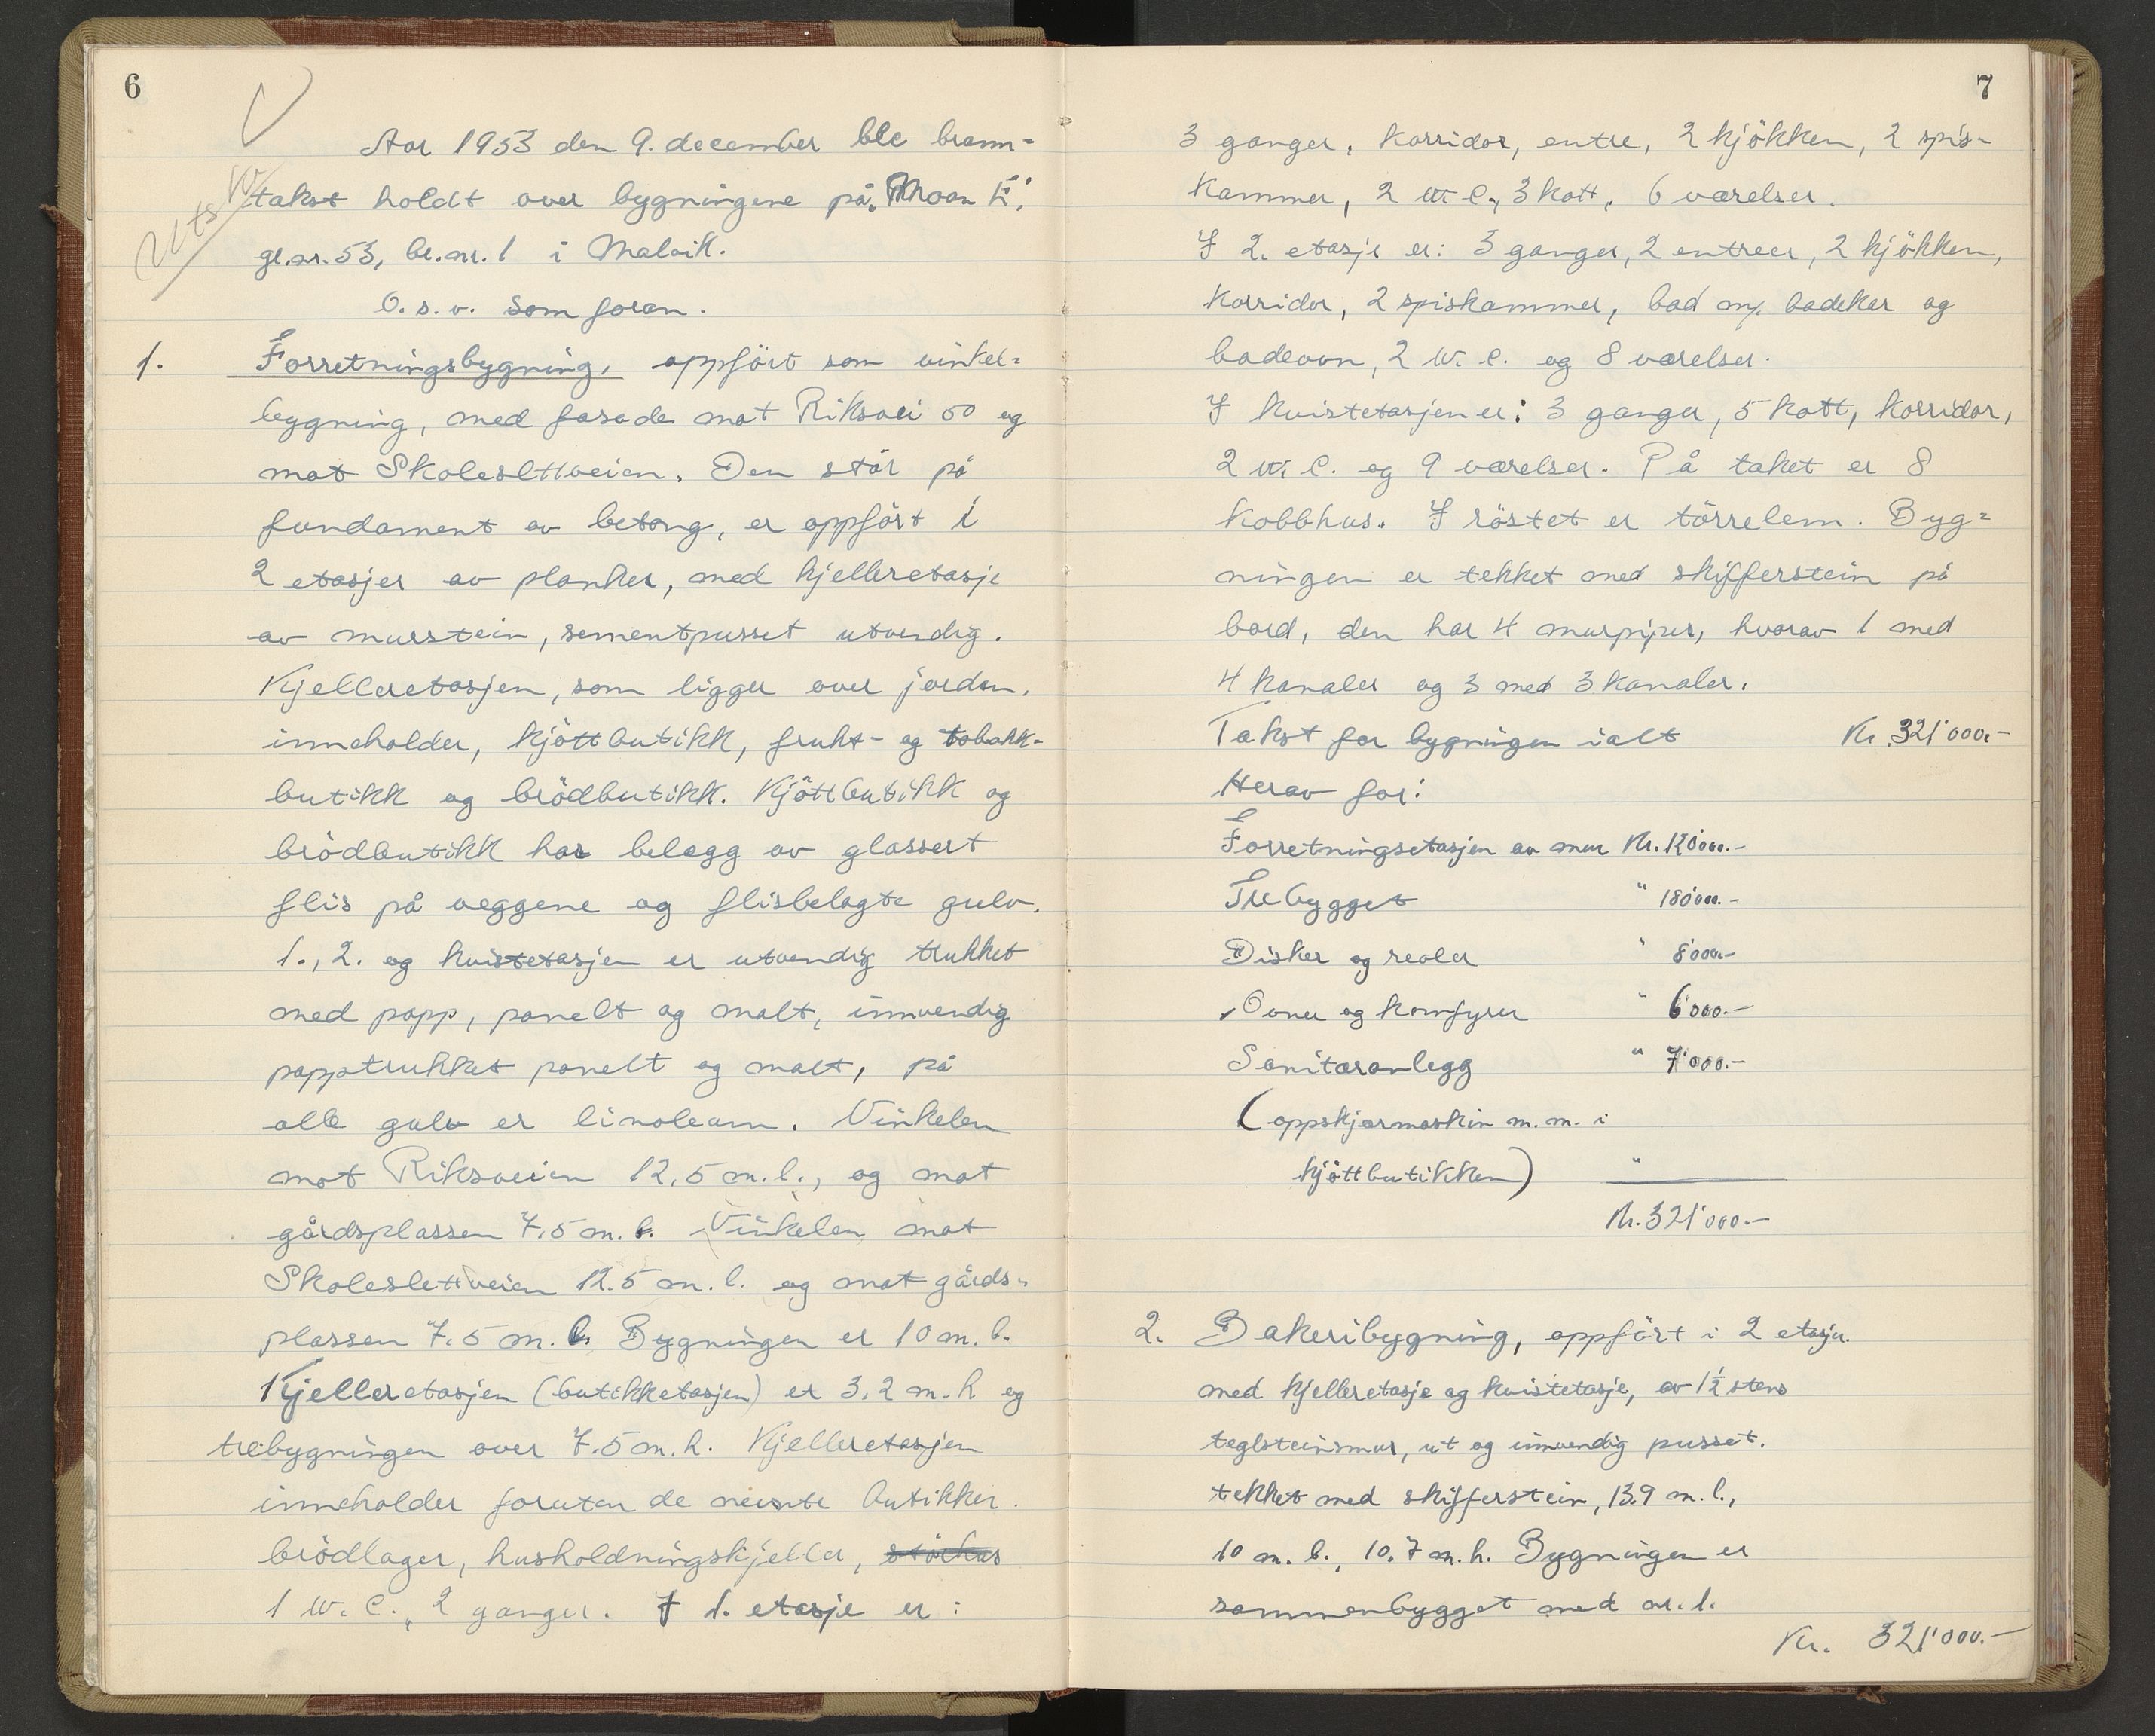 6
Utskr.
Aar 1953 den 9. december ble brann-
takst holdt over bygningene på "Moan E",
gl.nr. 53, br.nr. 1 i Malvik.
O.s.v. som foran.
1. Forretningsbygning, oppfört som vinkel-
bygning, med fasade mot Riksvei 50 og
mot Skoleslettveien. Den står på
fundament av betong, er oppfört i
2 etasjer av planker, med kjelleretasje
av murstein, sementpusset utvendig.
Kjelleretasjen, som ligger over jorden,
inneholder, kjöttbutikk, frukt- og tobakk-
butikk og brödbutikk. Kjöttbutikk og
brödbutikk har belegg av glassert
flis på veggene og flisbelagte gulv.
1., 2. og kvistetasjen er utvendig trukket
med papp, panelt og malt, innvendig
papptrukket panelt og malt, på
alle gulv er linoleum. Vinkelen
mot Riksveien 12,5 m.l., og mot
gårdsplassen 7.5 m.l. Vinkelen mot
Skoleslettveien 12.5 m.l. og mot gårds-
plassen 7.5 m.l. Bygningen er 10 m.b.
Kjelleretasjen (butikketasjen) er 3.2 m.h og
trebygningen over 7.5 m.h. Kjelleretasjen
inneholder foruten de nevnte butikker.
brödlager, husholdningskjeller, störhus
1 W.C., 2 ganger. I 1. etasje er:
7
3 ganger, korridor, entre, 2 kjökken, 2 spis-
kammer, 2 W.C., 3 kott, 6 værelser.
I 2. etasje er: 3 ganger, 2 entreer, 2 kjökken,
korridor, 2 spiskammer, bad m/ badekar og
badeovn, 2 W.C. og 8 værelser.
I kvistetasjen er: 3 ganger, 5 kott, korridor,
2 W.C. og 9 værelser. På taket er 8
kobbhus. I röstet er törrelem. Byg-
ningen er tekket med skifferstein på
bord, den har 4 murpiper, hvorav 1 med
4 kanaler og 3 med 3 kanaler.
Takst for bygningen ialt Kr. 321'000.-
Herav for:
Forretningsetasjen av mur Kr. 120'000.-
Trebygget " 180'000.-
Disker og reoler " 8'000.-
Ovner og komfyrer " 6'000.-
Sanitæranlegg " 7'000.-
(oppskjærmaskin m.m. i
kjöttbutikken) "
Kr. 321'000.-
2. Bakeribygning, oppfört i 2 etasjer.
med kjelleretasje og kvistetasje, av 1½ stens
teglsteinsmur, ut og innvendig pusset.
tekket med skifferstein, 13.9 m.l.,
10 m.b., 10.7 m.h. Bygningen er
sammenbygget med nr. 1.
Kr. 321'000.-